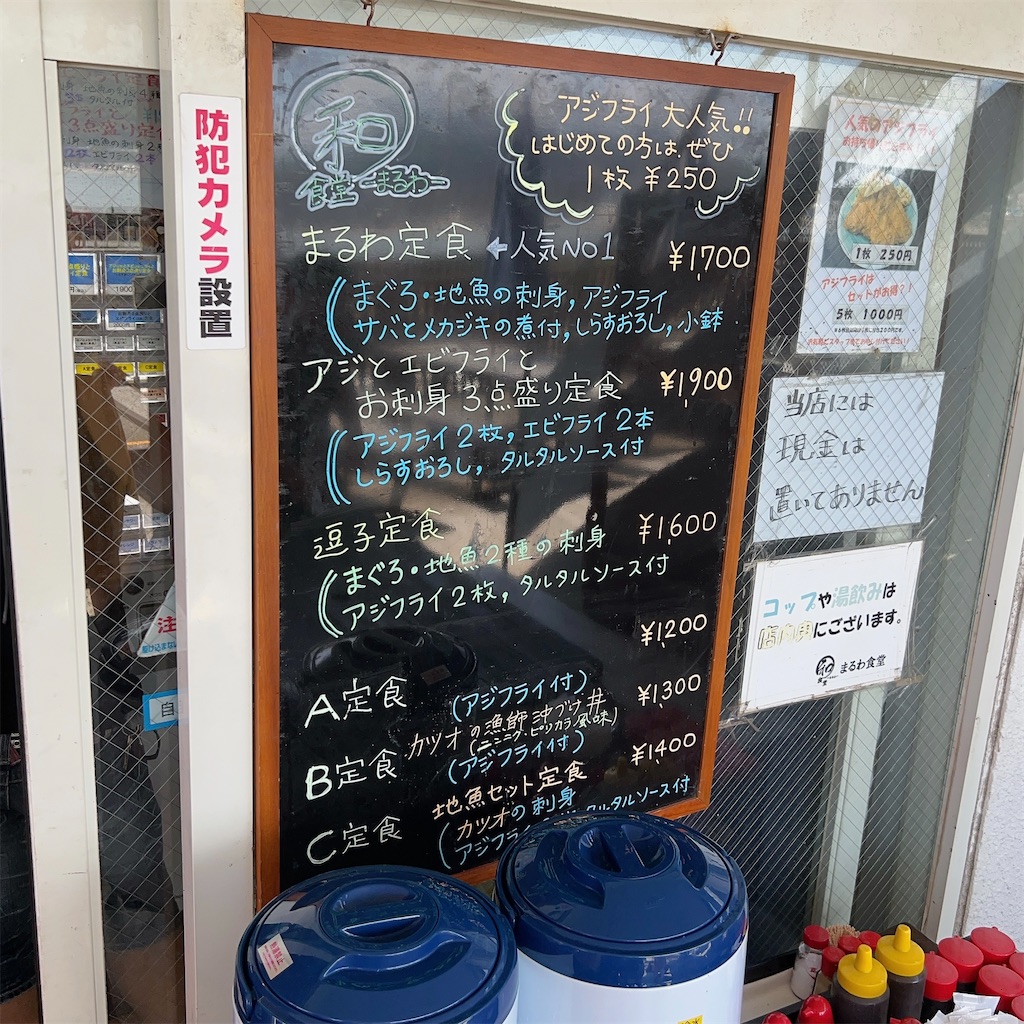 防犯カメラ設置
和
食堂 -まるわ-
アジフライ大人気!!
はじめての方は、ぜひ
1枚 ¥250
まるわ定食 ←人気No1 ¥1,700
まぐろ・地魚の刺身, アジフライ
サバとメカジキの煮付, しらすおろし, 小鉢
アジとエビフライと
お刺身3点盛り定食 ¥1,900
アジフライ2枚, エビフライ2本
しらすおろし, タルタルソース付
逗子定食 ¥1,600
まぐろ・地魚2種の刺身
アジフライ2枚, タルタルソース付
¥1,200
A定食 (アジフライ付)
¥1,300
カツオの漁師沖づけ丼
(ニンニク・ピリカラ風味)
B定食 (アジフライ付)
¥1400
地魚セット定食
C定食 カツオの刺身
アジフライ タルタルソース付
1枚 250円
アジフライは
セットがお得?!
5枚 1000円
当店には
現金は
置いてありません
コップや湯飲みは
店内用にございます。
和
食堂
まるわ食堂
注